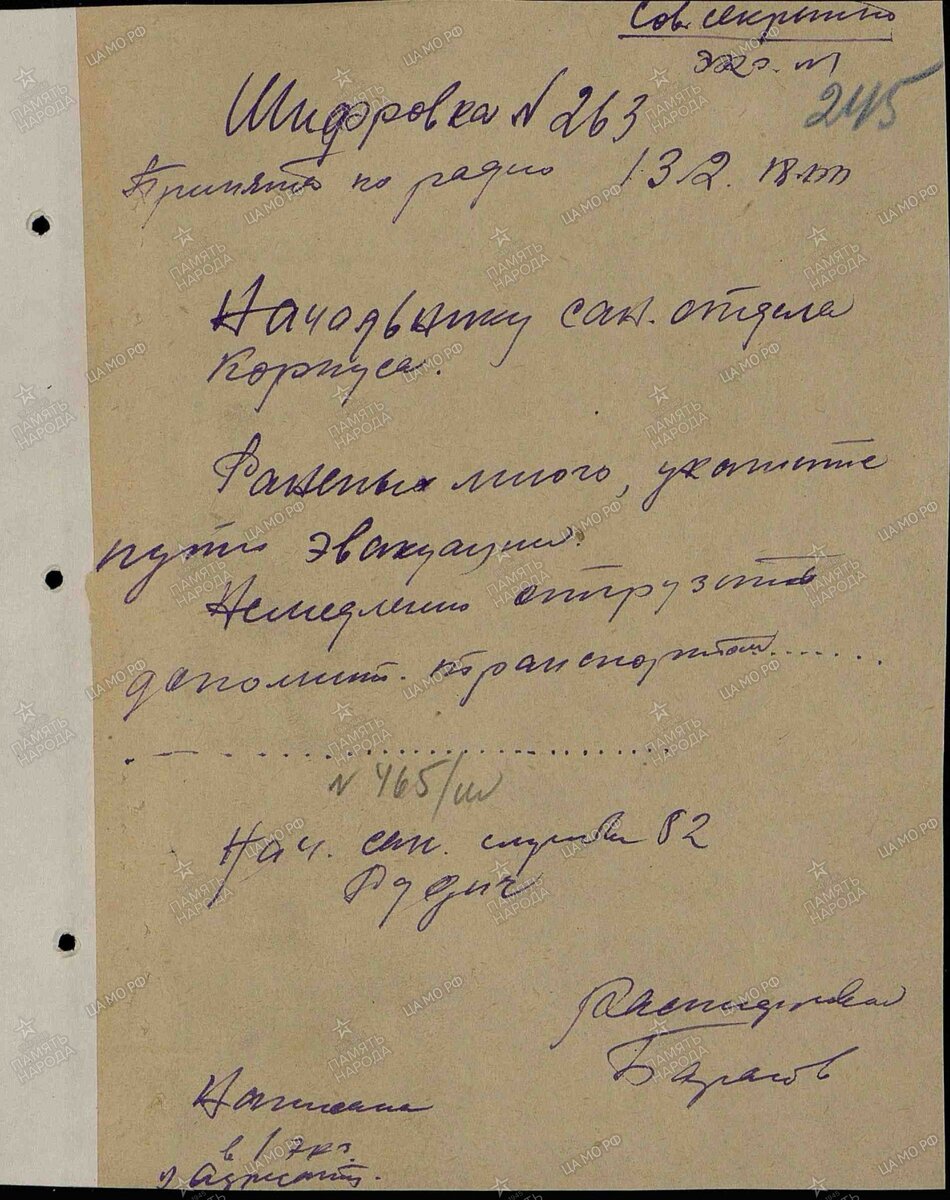 Сов. секретно
экз. №1
245
Шифровка № 263
Принята по радио 13/2.
Начальнику сан. отдела
Корпуса.
Раненых много, укажите
пути эвакуации.
Немедленно отгрузите
дополнит. транспортом.......
№ 465/ш
Нач. сан. службы 82
Рудич
Расшифровал
Написана
в 1 экз.
адресату.